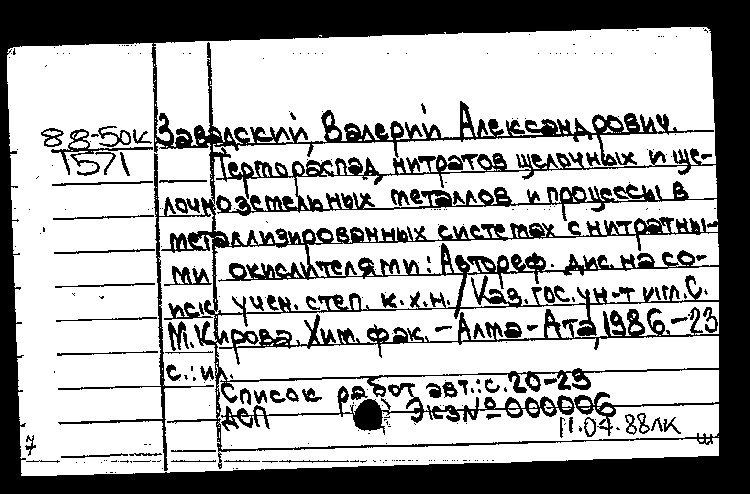 88-50К Завадский, Валерий Александрович.
1571 Термораспад нитратов щелочных и ще-
лочноземельных металлов и процессы в
металлизированных системах с нитратны-
ми окислителями: Автореф. дис. на со-
иск. учен. степ. к.х.н. / Каз. гос. ун-т им. С.
М. Кирова. Хим. фак. - Алма-Ата, 1986. - 23
с.: ил.
Список работ авт.: с. 20-23
ДСП Экз № 000006
11.04.88ЛК
7 Ш